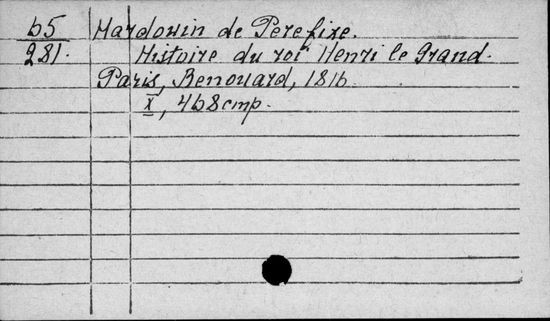 65 Hardouin de Perefixe.
281. Histoire du roi Henri le Grand.
Paris, Renouard, 1816.
X, 468 стр.